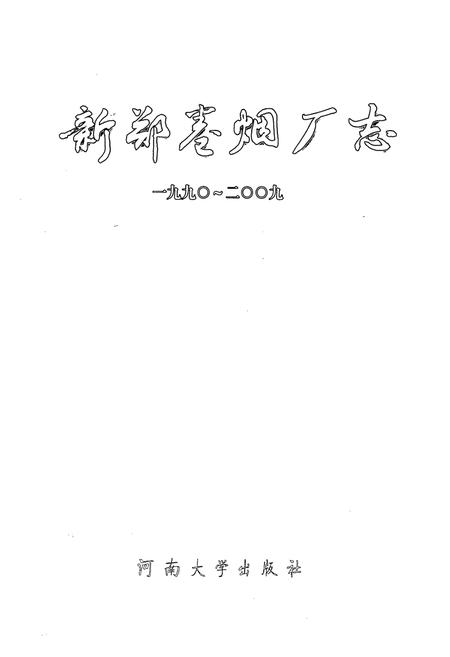 新郑卷烟厂志
一九九〇～二〇〇九
河南大学出版社